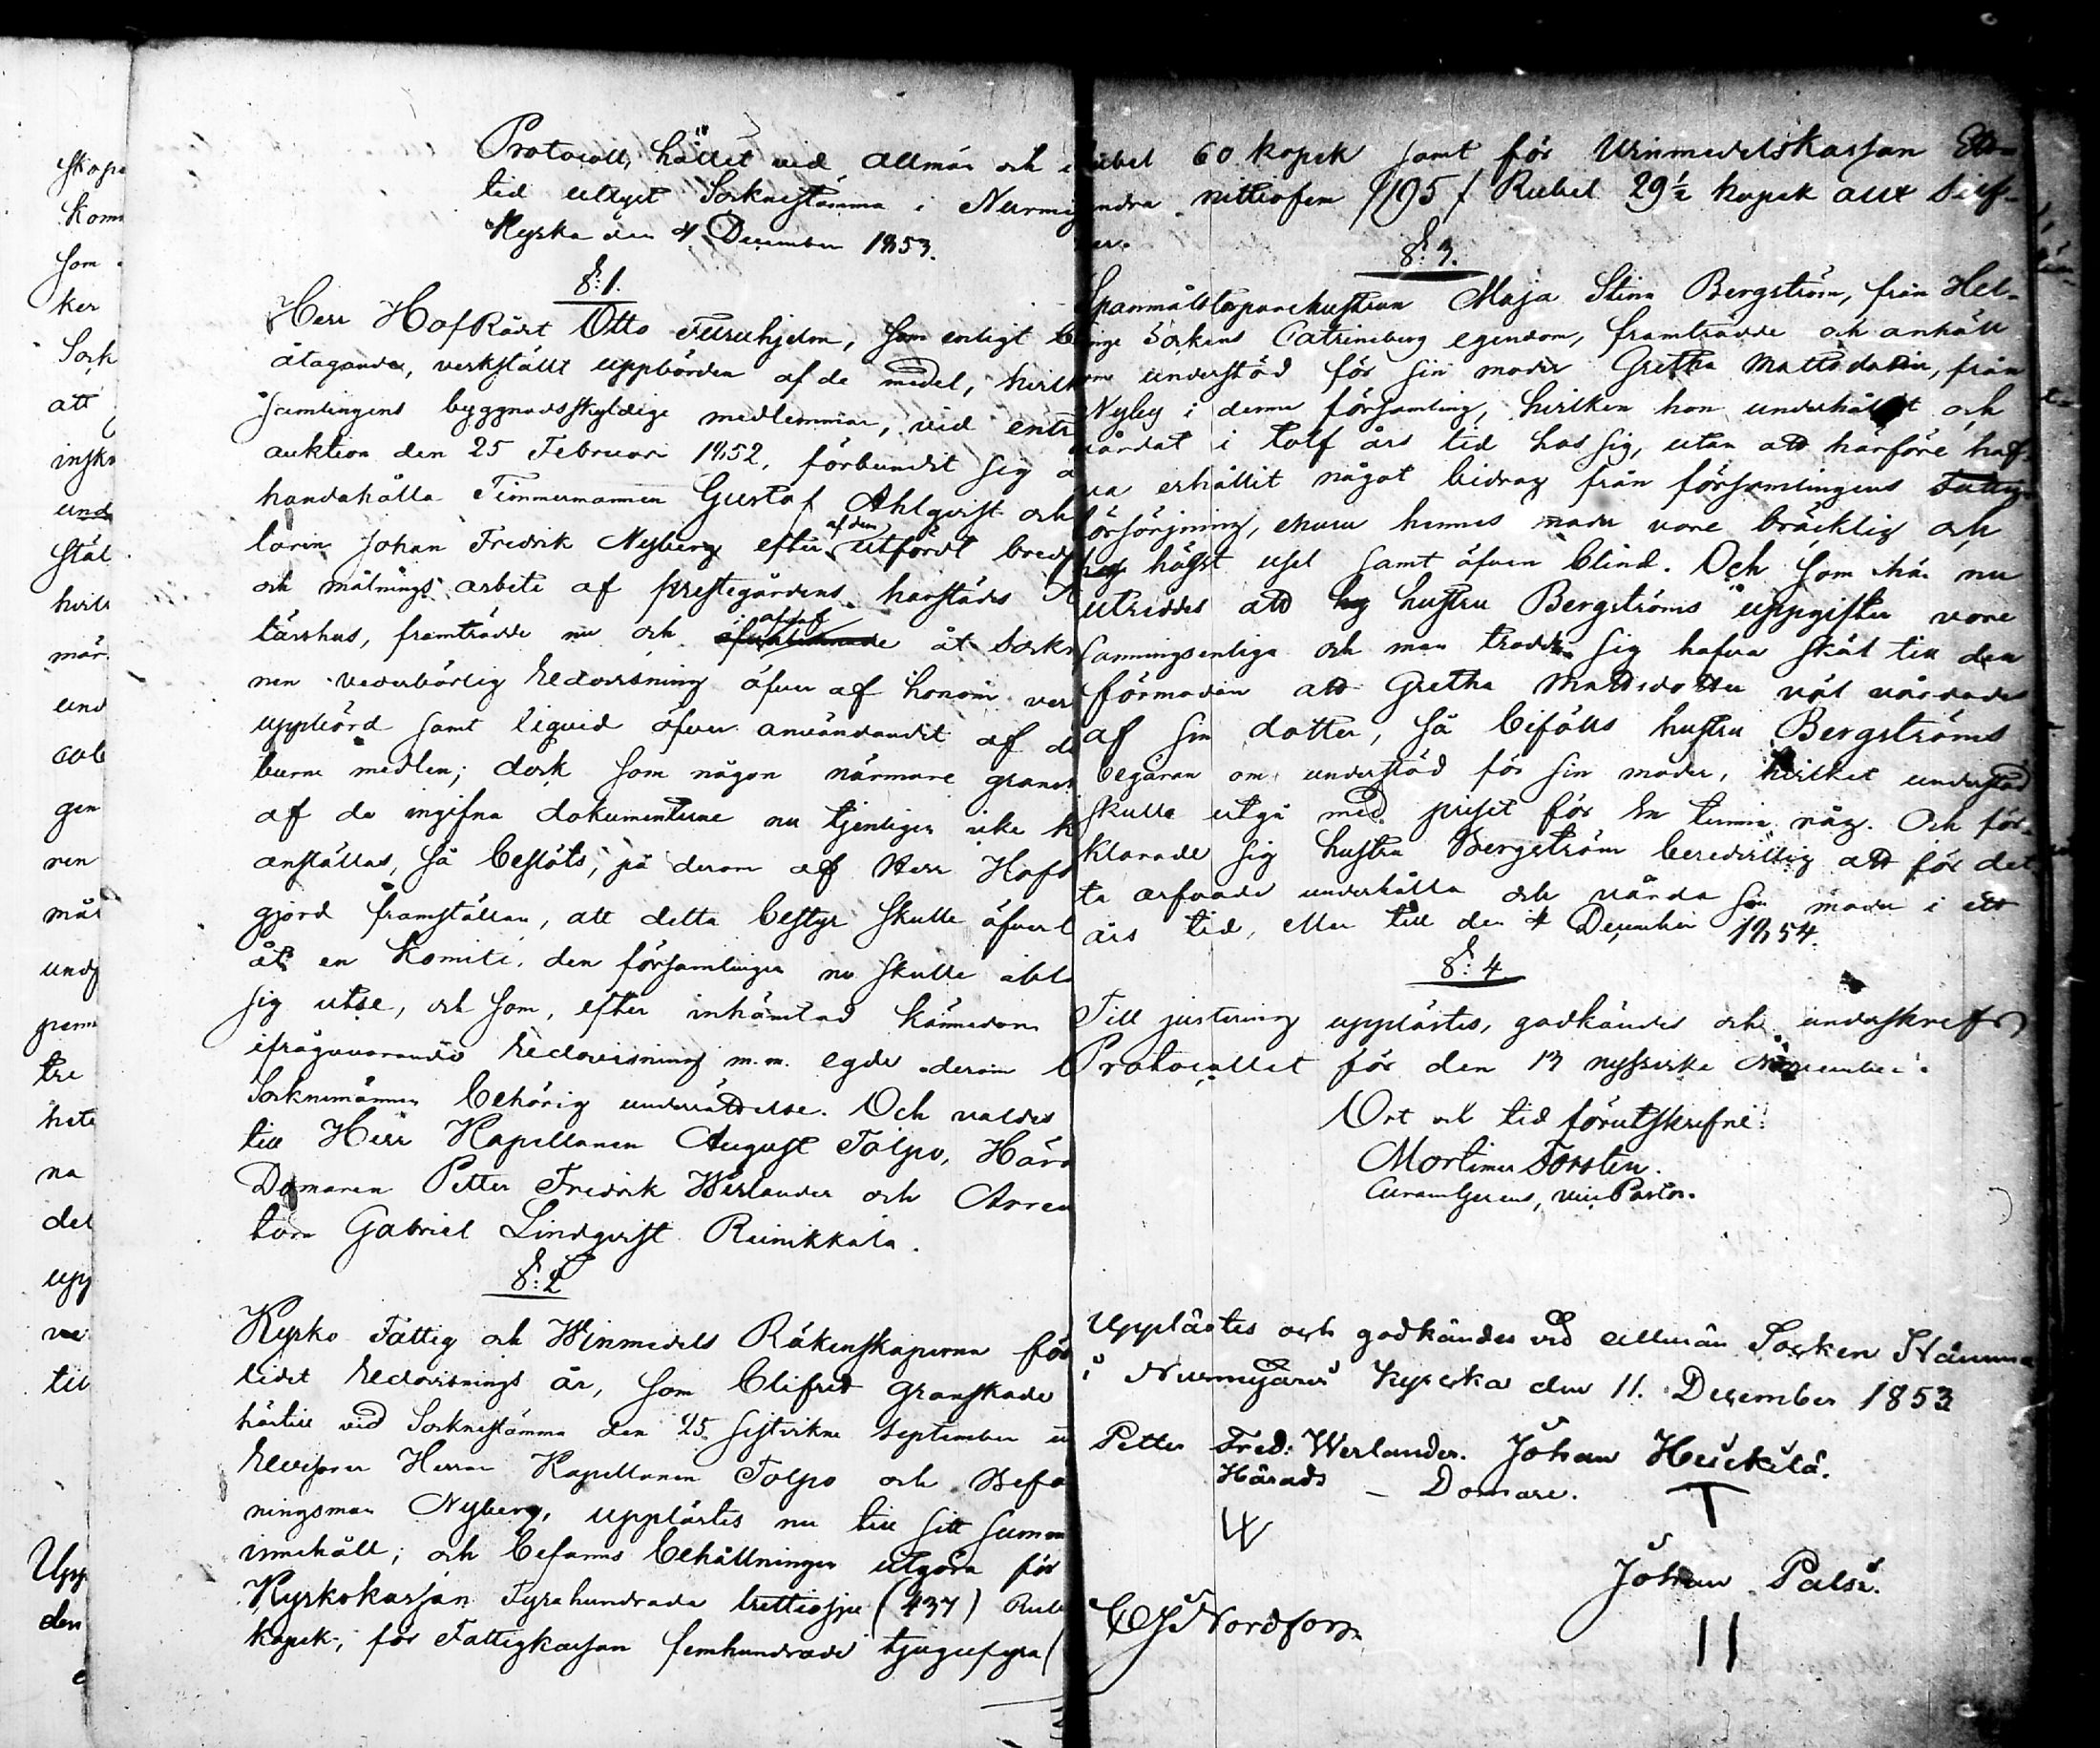 Protocoll, hållet vid allmän och i
tid utlyst Socknestämma i Nurmij
Kyrka den 4 December 1853.
§: 1.
Herr HofRådt Otto Furuhjelm, som enligt
åtagande, verkställt uppbörden af de medel, hvilk
samlingens byggnadsskyldige medlemmar, vid entr
auktion den 25 Februari 1852, förbundit sig a
handahålla Timmermannen Gustaf Ahlqvist och
larin Johan Fredrik Nyberg efter af dem utfördt
och målnings arbete af prestegårdens härstädes
tärshus, framträdde nu och aflaf åt Sockn
nen vederbörlig Redovisning öfver af honom ver
uppbörd samt liquid öfver användandet af de
burna medlen; dock som någon närmare gransk
af de ingifna dokumenterne nu tjenligen icke k
anställas, så beslöts, på derom af Herr Hofr
gjord framställan, att detta bestyr skulle öfverl
åt en Komité, den församlingen nu skulle ibla
sig utse, och som, efter inhämtad kännedom
ifrågavarande Redovisning m.m. egde derom
Socknemännen behörig underrättelse. Och valdes
till Herr Kapellanen August Tolpo, Hära
Domaren Petter Fredrik Werlander och Arren
torn Gabriel Lindqvist Reinikkala.
§: 2
Kyrko Fattig och Winmedels Räkenskaperna för
lidet Redovisnings år, som blifvit granskade
härtill vid Socknestämma den 25 sistvikne September
Revisorer Herrar Kapellanen Tolpo och Befa
ningsman Nyberg, upplästes nu till sitt summa
innehåll; och befanns behållningen utgöra för
Kyrkokassan Fyrahundrade trettiosju (437) Rub
kopek; för Fattigkassan femhundrade tjugufyra (
ubel 60 kopek samt för Winmedelskassan Ett-
ndra nittiofem /195/ Rubel 29½ kopek allt Silf-
er.
§: 3.
Spanmålstorparehustrun Maja Stina Bergström, från Hel-
inge Sockens Catrineberg egendom, framträdde och anhöll
om understöd för sin moder Gretha Mattsdotter, från
Nyby i denna församling, hvilken hon underhållit och
vårdat i tolf års tid hos sig, utan att härföre haf-
va erhållit något bidrag från församlingens Fattig-
försörjning, ehuru hennes moder vore bräcklig och
högst usel samt äfven blind. Och som här nu
utreddes att hustru Bergströms uppgifter vore
sanningsenliga och man trodde sig hafva skäl till den
förmodan att Gretha Mattsdotter väl vårdades
af sin dotter, så bifölls hustru Bergströms
begäran om understöd för sin moder, hvilket understöd
skulle utgå med priset för En tunna råg. Och för-
klarade sig hustru Bergström beredvillig att för det-
ta arfvode underhålla och vårda sin moder i ett
års tid, eller till den 4 December 1854.
§: 4
Till justering upplästes, godkändes och underskrefs
Protocollet för den 13 nyssvikne November.
Ort och tid förutskrefne:
Mortimer Forstén.
Curam Gerens, vice Pastor.
Upplästes och godkändes vid allmän Socken Stämma
i Nurmijärvi Kyrcka den 11. December 1853
Petter Fred: Werlander. Johan Heickilä.
Härads - Domare. T
W
Johan Palsi.
Nordfors
II
skape
Kom
som
ker
Sock
att
inskr
und
stäl
hvilk
mär
und
gen
nen
mål
tre
hete
na
det
upp
til
Upp
den